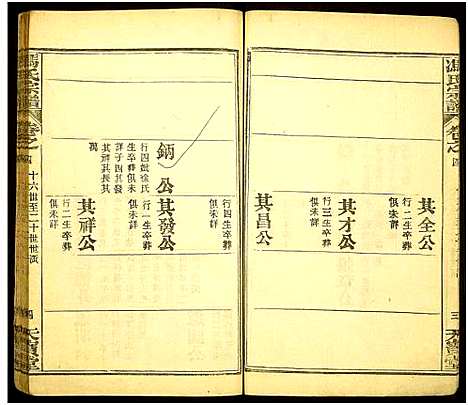 馮氏宗譜
卷之四
三
大寶堂
其全公
行二生卒葬
俱未詳
其才公
行三生卒葬
俱未詳
其昌公
行四生卒葬
俱未詳
鈵公
行四娶徐氏
生卒葬俱未
詳子四其貴
其祥其長其
萬
其發公
行一生卒葬
俱未詳
其祥公
行二生卒葬
俱未詳
馮氏宗譜
卷之四
十六世至二十世世演